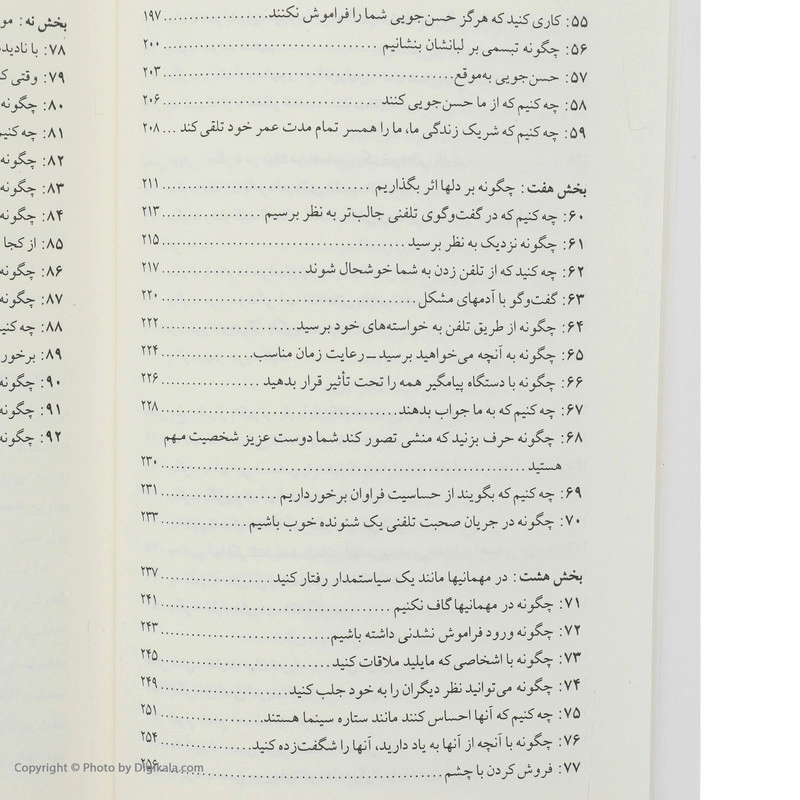 ۵۵: کاری کنید که هرگز حسن‌جویی شما را فراموش نکنند ........ ۱۹۷
۵۶: چگونه تبسمی بر لبانشان بنشانیم ........ ۲۰۰
۵۷: حسن‌جویی به‌موقع ........ ۲۰۳
۵۸: چه کنیم که از ما حسن‌جویی کنند ........ ۲۰۶
۵۹: چه کنیم که شریک زندگی ما، ما را همسر تمام مدت عمر خود تلقی کند ... ۲۰۸
بخش هفت: چگونه بر دلها اثر بگذاریم ........ ۲۱۱
۶۰: چه کنیم که در گفت‌وگوی تلفنی جالب‌تر به نظر برسیم ........ ۲۱۳
۶۱: چگونه نزدیک به نظر برسید ........ ۲۱۵
۶۲: چه کنید که از تلفن زدن به شما خوشحال شوند ........ ۲۱۷
۶۳: گفت‌وگو با آدمهای مشکل ........ ۲۲۰
۶۴: چگونه از طریق تلفن به خواسته‌های خود برسید ........ ۲۲۲
۶۵: چگونه به آنچه می‌خواهید برسید ـ رعایت زمان مناسب ........ ۲۲۴
۶۶: چگونه با دستگاه پیامگیر همه را تحت تأثیر قرار بدهید ........ ۲۲۶
۶۷: چه کنیم که به ما جواب بدهند ........ ۲۲۸
۶۸: چگونه حرف بزنید که منشی تصور کند شما دوست عزیز شخصیت مهم
هستید ........ ۲۳۰
۶۹: چه کنیم که بگویند از حساسیت فراوان برخورداریم ........ ۲۳۱
۷۰: چگونه در جریان صحبت تلفنی یک شنونده خوب باشیم ........ ۲۳۳
بخش هشت: در مهمانیها مانند یک سیاستمدار رفتار کنید ........ ۲۳۷
۷۱: چگونه در مهمانیها گاف نکنیم ........ ۲۴۱
۷۲: چگونه ورود فراموش نشدنی داشته باشیم ........ ۲۴۳
۷۳: چگونه با اشخاصی که مایلید ملاقات کنید ........ ۲۴۵
۷۴: چگونه می‌توانید نظر دیگران را به خود جلب کنید ........ ۲۴۹
۷۵: چه کنیم که آنها احساس کنند مانند ستاره سینما هستند ........ ۲۵۱
۷۶: چگونه با آنچه از آنها به یاد دارید، آنها را شگفت‌زده کنید ........ ۲۵۴
۷۷: فروش کردن با چشم ........ ۲۵۶
بخش نه:
۷۸: با
۷۹: وقتی
۸۰: چگونه
۸۱: چه
۸۲: چگونه
۸۳: چگونه
۸۴: چگونه
۸۵: از کجا
۸۶: چگونه
۸۷: چگونه
۸۸: چه
۸۹:
۹۰: چگونه
۹۱: چگونه
۹۲: چگونه
Copyright © Photo by Digikala.com